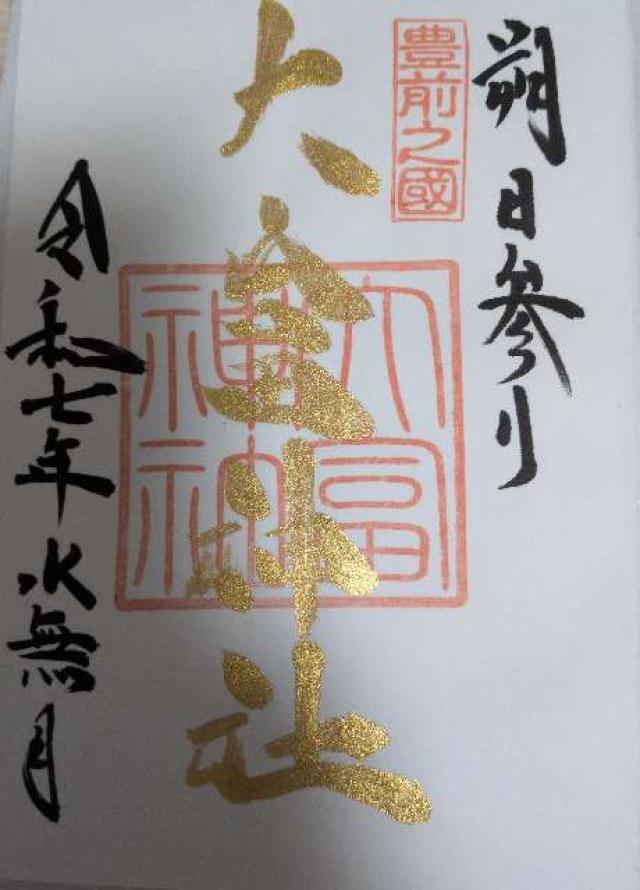 朔日参り
豊前之國
大富神社
大富
神社
令和七年水無月